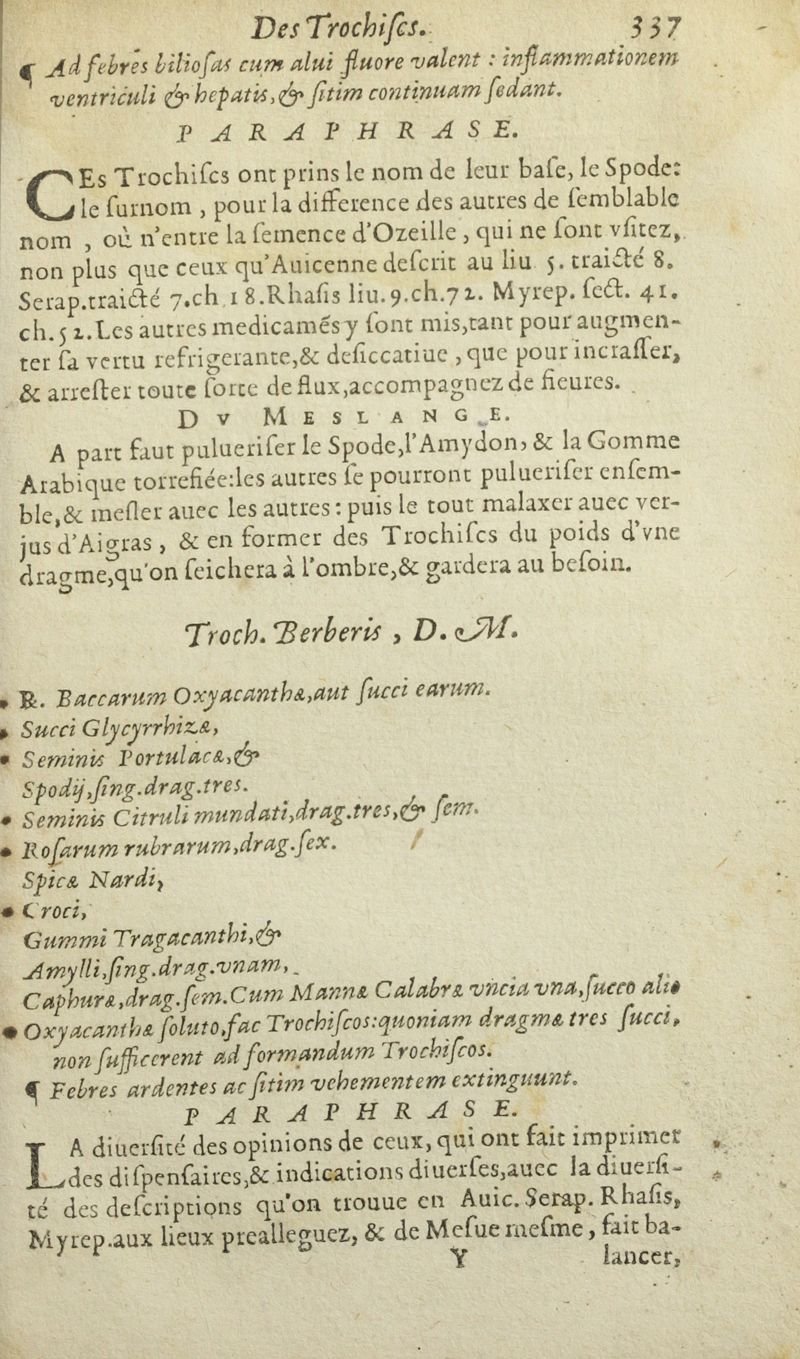 Des Trochiſcs. 337
¶ Ad febres bilioſas cum alui fluore valent : inflammationem
ventriculi & hepatis, & ſitim continuam ſedant.
PARAPHRASE.
CEs Trochiſcs ont prins le nom de leur baſe, le Spode:
le ſurnom , pour la difference des autres de ſemblable
nom , où n'entre la ſemence d'Ozeille , qui ne ſont vſitez,
non plus que ceux qu'Auicenne deſcrit au liu 5. traicté 8.
Serap.traicté 7.ch 18.Rhaſis liu.9.ch.72. Myrep. ſect. 41.
ch.52.Les autres medicamẽs y ſont mis,tant pour augmen-
ter ſa vertu refrigerante,& deſiccatiue , que pour incraſſer,
& arreſter toute ſorte de flux,accompagnez de fieures.
DV MESLANGE.
A part faut pulueriſer le Spode,l'Amydon, & la Gomme
Arabique torrefiée:les autres ſe pourront pulueriſer enſem-
ble,& meſler auec les autres : puis le tout malaxer auec ver-
jus d'Aigras , & en former des Trochiſcs du poids d'vne
dragme,qu'on ſeichera à l'ombre,& gardera au beſoin.
Troch. Berberis , D. M.
℞. Baccarum Oxyacanthæ,aut ſucci earum.
Succi Glycyrrhizæ,
Seminis Portulacæ,&
Spodij,ſing.drag.tres.
Seminis Citruli mundati,drag.tres,& ſem.
Roſarum rubrarum,drag.ſex.
Spicæ Nardi,
Croci,
Gummi Tragacanthi,&
Amylli,ſing.drag.vnam,
Caphuræ,drag.ſem.Cum Mannæ Calabræ vncia vna,ſucco alio
Oxyacanthæ ſoluto,fac Trochiſcos:quoniam dragmæ tres ſucci,
non ſufficerent ad formandum Trochiſcos.
¶ Febres ardentes ac ſitim vehementem extinguunt.
PARAPHRASE.
LA diuerſité des opinions de ceux, qui ont fait imprimer
des diſpenſaires,& indications diuerſes,auec la diuerſi-
té des deſcriptions qu'on trouue en Auic. Serap. Rhaſis,
Myrep.aux lieux prealleguez, & de Meſue meſme , fait ba-
Y lancer,